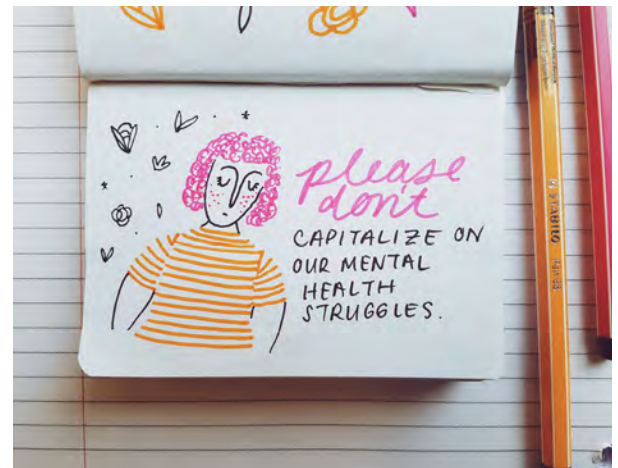 please
don't
CAPITALIZE ON
OUR MENTAL
HEALTH
STRUGGLES.
STABILO